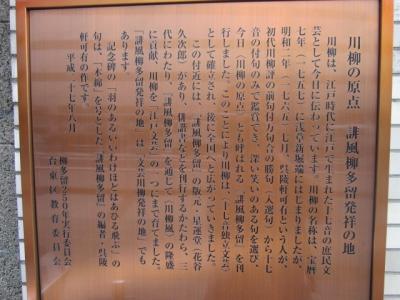 川柳の原点 誹風柳多留発祥の地
川柳は、江戸時代に江戸で生まれた十七音の庶民文
芸として今日に伝わっています。川柳の名称は、宝暦
七年（一七五七）に浅草新堀端にはじまりましたが、
明和二年（一七六五）七月、呉陵軒可有という人が、
初代川柳評の前句付万句合の勝句（入選句）から十七
音の付句のみで鑑賞でき、深い笑いのある句を選び、
今日〈川柳の原点〉とも呼ばれる『誹風柳多留』を刊
行しました。このことにより川柳は、〈十七音独立文芸〉
として確立され、後に全国へと伝がっていきました。
この付近には、『誹風柳多留』の版元・星運堂（花谷
久次郎）があり、俳諧の書などを刊行するかたわら、三
代にわたり『誹風柳多留』を通じて〈川柳風〉の隆盛
に貢献、川柳を〈江戸文芸〉の一つにまで育てました。
「誹風柳多留発祥の地」は、〈文芸川柳発祥の地〉でも
あります。
記念碑の「羽のあるいいわけほどはあひる飛ぶ」の
句は、〈木綿〉を号とした『誹風柳多留』の編者・呉陵
軒可有の作です。
平成二十七年八月
柳多留250年実行委員会
台東区教育委員会